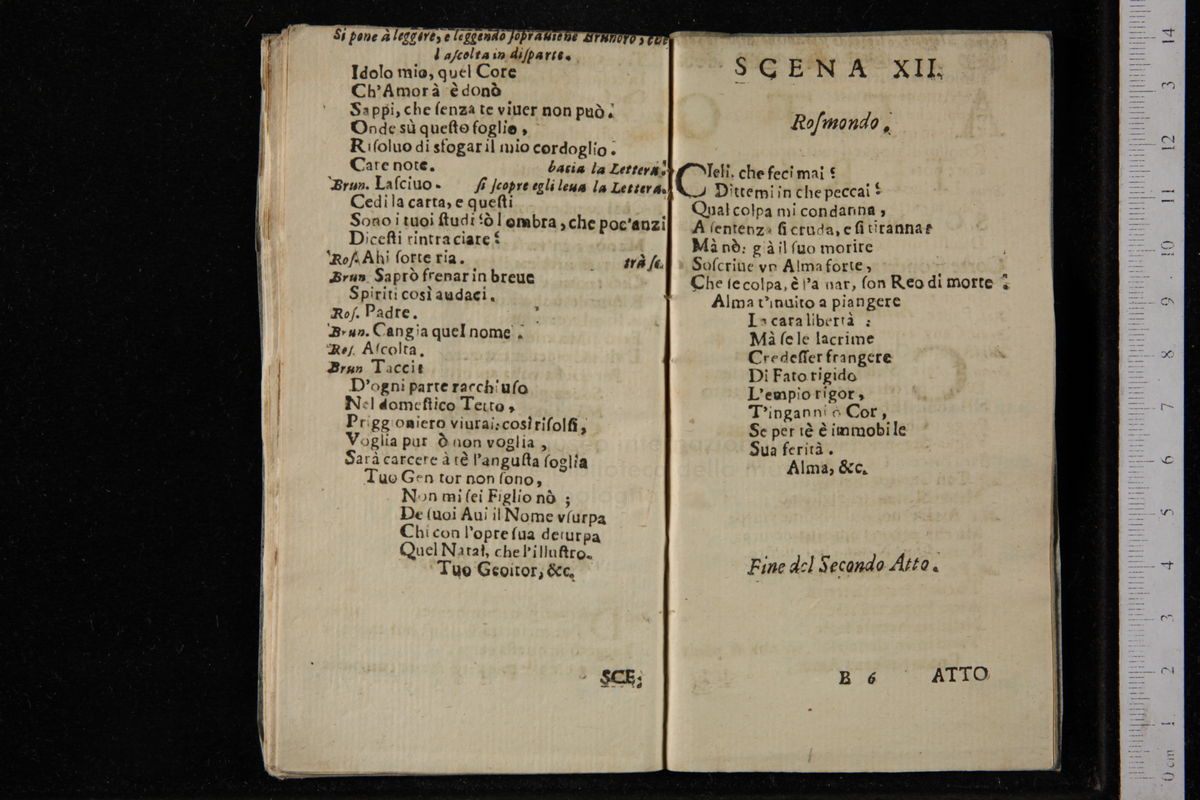 Si pone à leggere, e leggendo ſoprauiene Brunoro, che
l aſcolta in diſparte.
Idolo mio, quel Core
Ch'Amor à è donò
Sappi, che ſenza te viuer non può.
Onde sù queſto foglio,
Riſoluo di sfogar il mio cordoglio.
Care note. bacia la Lettera.
Brun. Laſciuo. ſi ſcopre egli leua la Lettera.
Cedi la carta, e queſti
Sono i tuoi ſtudi? ò l ombra, che poc'anzi
Diceſti rintracciare?
Roſ. Ahi ſorte ria. trà ſe.
Brun. Saprò frenar in breue
Spiriti così audaci.
Roſ. Padre.
Brun. Cangia quel nome.
Roſ. Aſcolta.
Brun Tacci:
D'ogni parte racchiuſo
Nel domeſtico Tetto,
Prigg oniero viurai: così riſolſi,
Voglia pur ò non voglia,
Sarà carcere à tè l'anguſta ſoglia
Tuo Gen tor non ſono,
Non mi ſei Figlio nò;
De ſuoi Aui il Nome vſurpa
Chi con l'opre ſua deturpa
Quel Natal, che l'illuſtro.
Tuo Geoitor, &c.
SCE;
SCENA XII.
Roſmondo.
CIeli, che feci mai?
Dittemi in che peccai?
Qual colpa mi condanna,
A ſentenza ſi cruda, e ſi tiranna?
Mà nò: g à il ſuo morire
Soſcriue vn Alma forte,
Che ſe colpa, è l'a nar, ſon Reo di morte
Alma t'inuito a piangere
La cara libertà:
Mà ſe le lacrime
Credeſſer frangere
Di Fato rigido
L'empio rigor,
T'inganni ò Cor,
Se per tè è immobile
Sua ferità.
Alma, &c.
Fine del Secondo Atto.
E 6 ATTO
0 cm 1 2 3 4 5 6 7 8 9 10 11 12 13 14